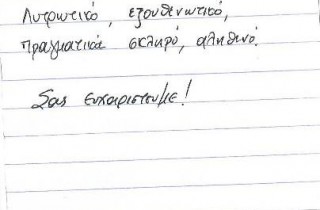 Λυτρωτικό, εξουθενωτικό,
πραγματικά σκληρό, αληθινό.
Σας ευχαριστούμε!